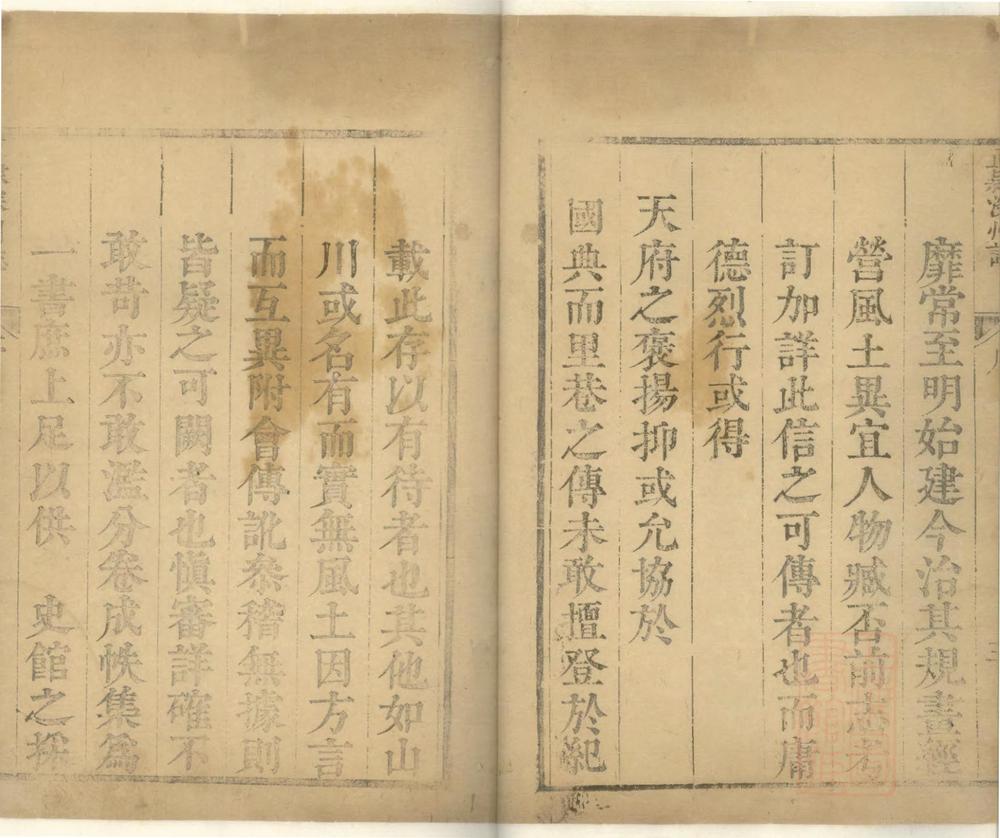 靡常至明始建今治其規畫經
營風土異宜人物臧否前志考
訂加詳此信之可傳者也而庸
德烈行或得
天府之褒揚抑或允協於
國典而里巷之傳未敢擅登於紀
載此存以有待者也其他如山
川或名有而實無風土因方言
而互異附會傳訛叅稽無據則
皆疑之可闕者也愼審詳確不
敢苛亦不敢濫分卷成帙集爲
一書庶上足以供 史館之採